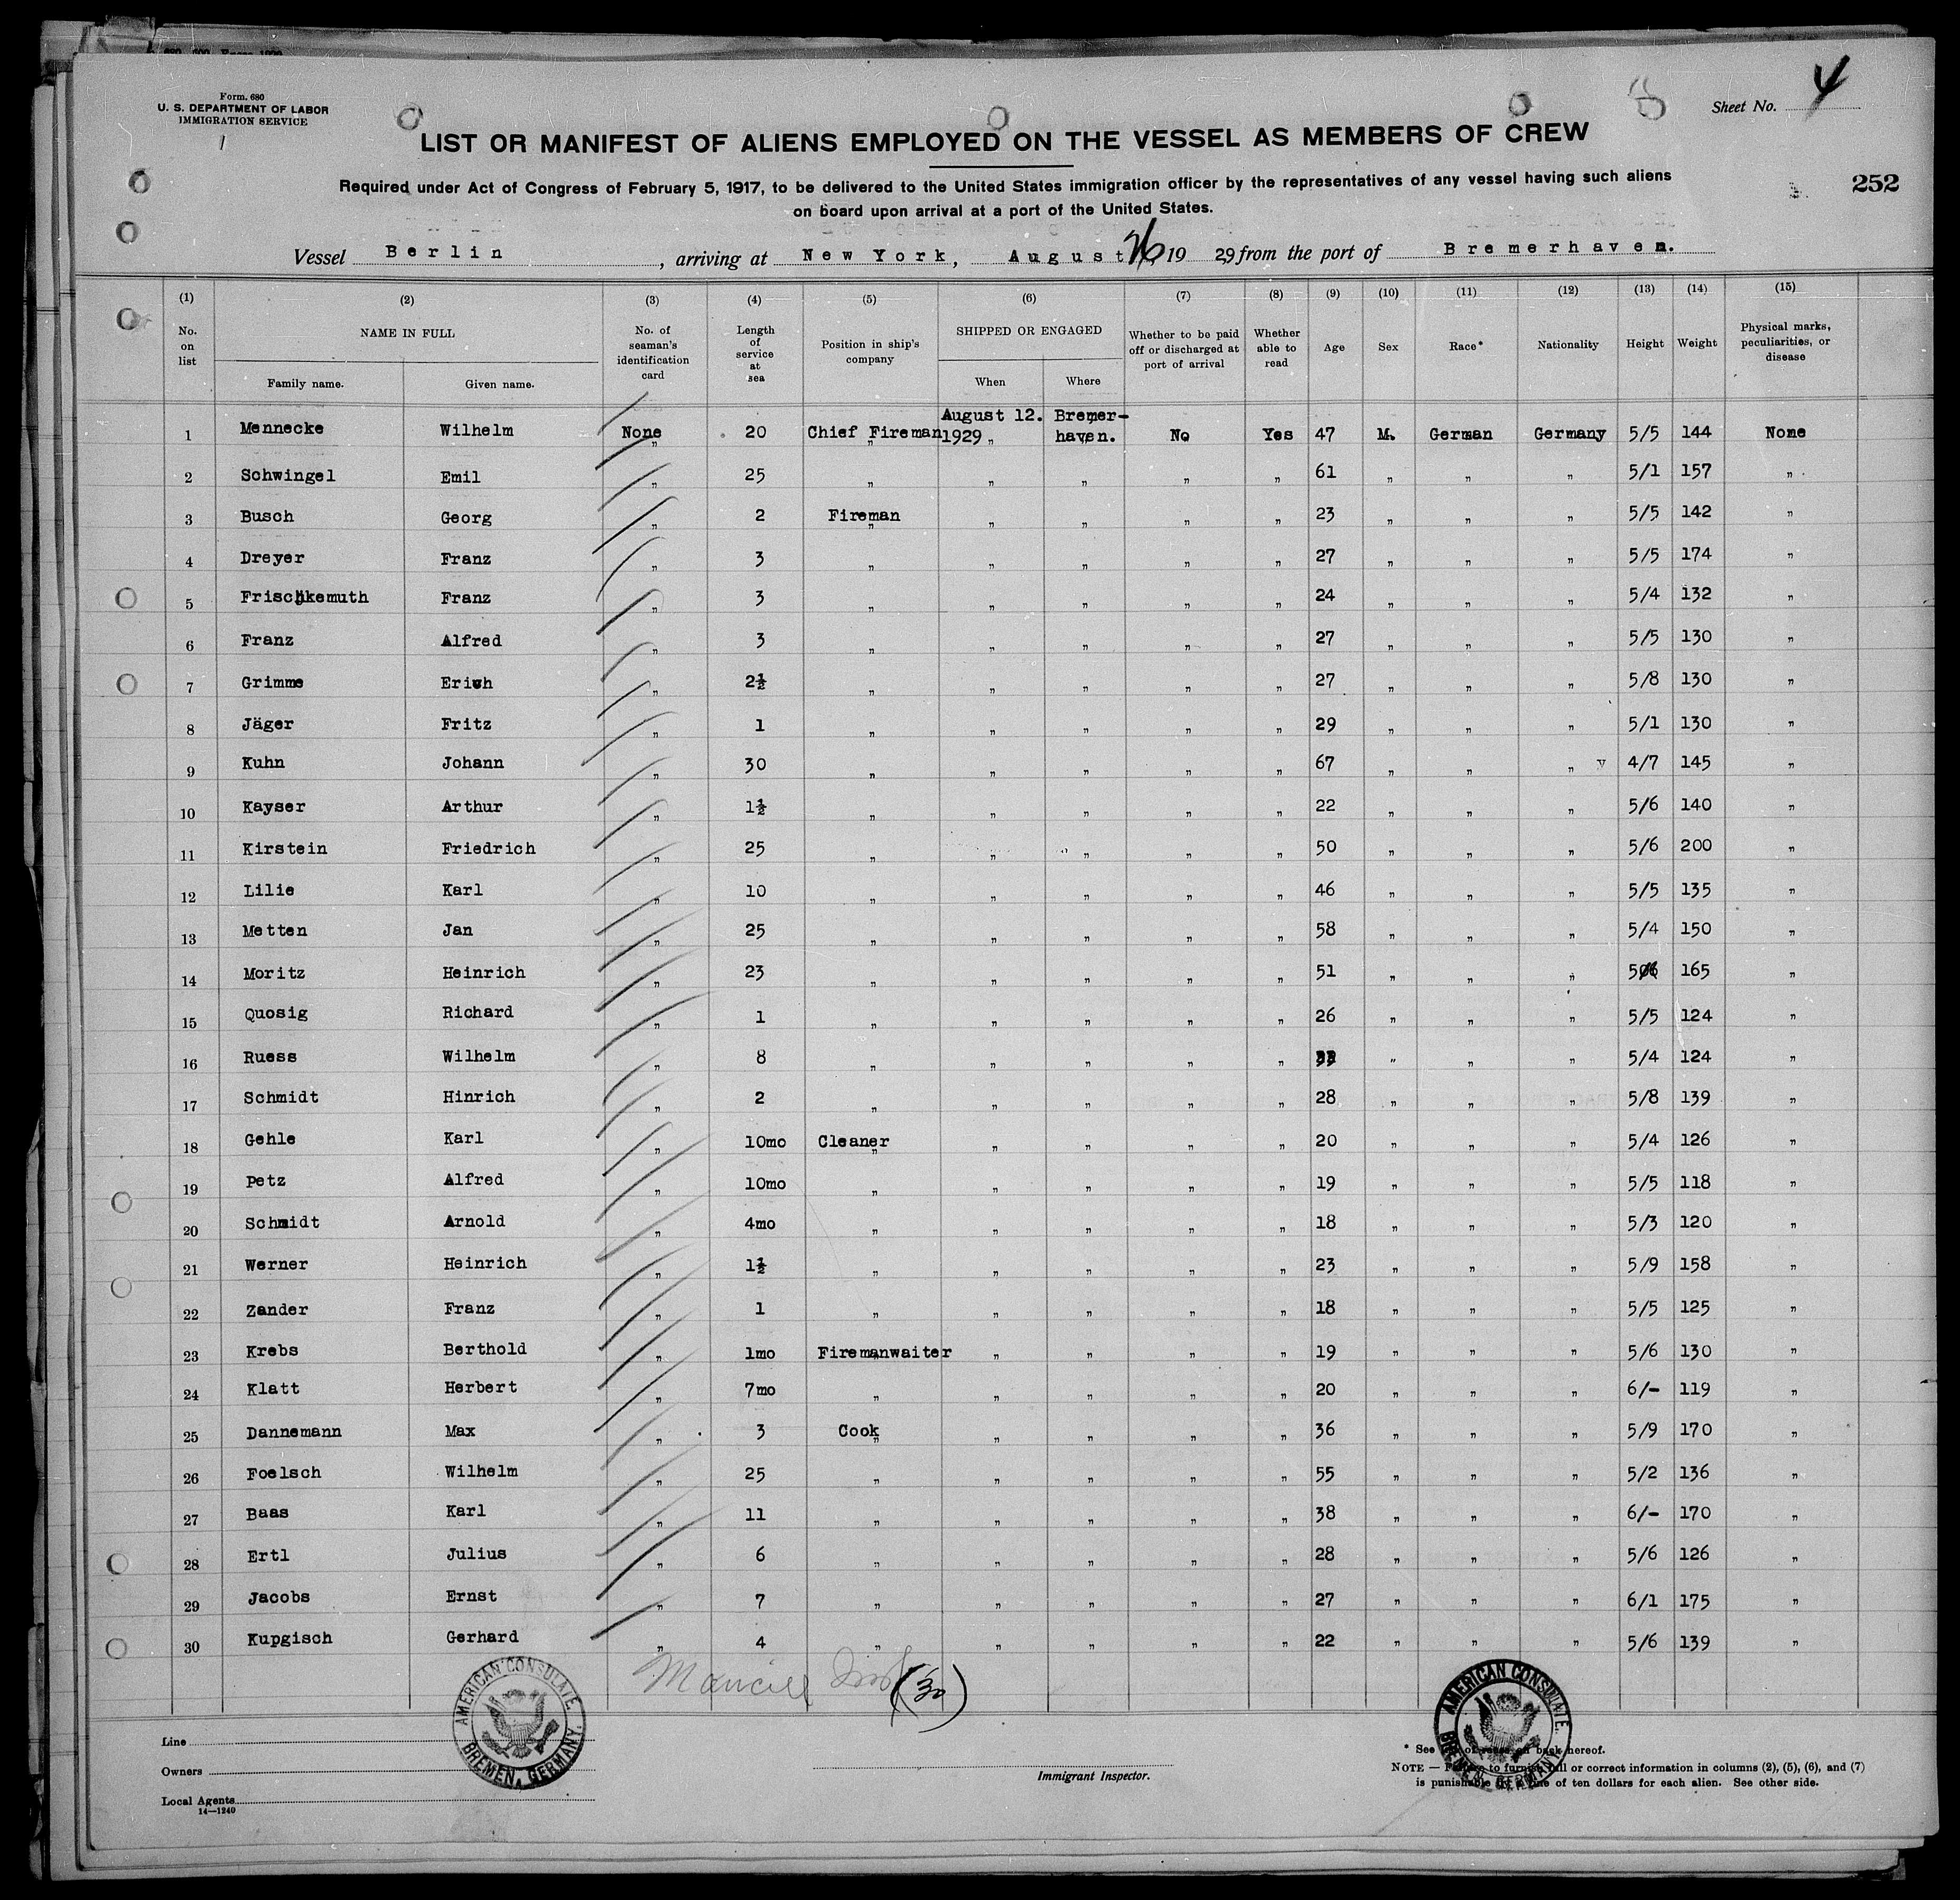 Form. 680
U. S. DEPARTMENT OF LABOR
IMMIGRATION SERVICE
Sheet No. 4
LIST OR MANIFEST OF ALIENS EMPLOYED ON THE VESSEL AS MEMBERS OF CREW
Required under Act of Congress of February 5, 1917, to be delivered to the United States immigration officer by the representatives of any vessel having such aliens
on board upon arrival at a port of the United States.
252
Vessel Berlin, arriving at New York, August 26, 1929 from the port of Bremerhaven.
(1) (2) (3) (4) (5) (6) (7) (8) (9) (10) (11) (12) (13) (14) (15)
No. on list NAME IN FULL Family name. Given name. No. of seaman's identification card Length of service at sea Position in ship's company SHIPPED OR ENGAGED When Where Whether to be paid off or discharged at port of arrival Whether able to read Age Sex Race* Nationality Height Weight Physical marks, peculiarities, or disease
1 Mennecke Wilhelm None 20 Chief Fireman August 12. 1929 Bremer-haven. No Yes 47 M. German Germany 5/5 144 None
2 Schwingel Emil " 25 " " " " " 61 " " " 5/1 157 "
3 Busch Georg " 2 Fireman " " " " 23 " " " 5/5 142 "
4 Dreyer Franz " 3 " " " " " 27 " " " 5/5 174 "
5 Frischkemuth Franz " 3 " " " " " 24 " " " 5/4 132 "
6 Franz Alfred " 3 " " " " " 27 " " " 5/5 130 "
7 Grimme Erich " 2½ " " " " " 27 " " " 5/8 130 "
8 Jäger Fritz " 1 " " " " " 29 " " " 5/1 130 "
9 Kuhn Johann " 30 " " " " " 67 " " " 4/7 145 "
10 Kayser Arthur " 1½ " " " " " 22 " " " 5/6 140 "
11 Kirstein Friedrich " 25 " " " " " 50 " " " 5/6 200 "
12 Lilie Karl " 10 " " " " " 46 " " " 5/5 135 "
13 Metten Jan " 25 " " " " " 58 " " " 5/4 150 "
14 Moritz Heinrich " 23 " " " " " 51 " " " 165 "
15 Quosig Richard " 1 " " " " " 26 " " " 5/5 124 "
16 Ruess Wilhelm " 8 " " " " " " " " 5/4 124 "
17 Schmidt Hinrich " 2 " " " " " 28 " " " 5/8 139 "
18 Gehle Karl " 10mo Cleaner " " " " 20 " " " 5/4 126 "
19 Petz Alfred " 10mo " " " " " 19 " " " 5/5 118 "
20 Schmidt Arnold " 4mo " " " " " 18 " " " 5/3 120 "
21 Werner Heinrich " 1½ " " " " " 23 " " " 5/9 158 "
22 Zander Franz " 1 " " " " " 18 " " " 5/5 125 "
23 Krebs Berthold " 1mo Firemanwaiter " " " " 19 " " " 5/6 130 "
24 Klatt Herbert " 7mo " " " " " 20 " " " 6/- 119 "
25 Dannemann Max " 3 Cook " " " " 36 " " " 5/9 170 "
26 Foelsch Wilhelm " 25 " " " " " 55 " " " 5/2 136 "
27 Baas Karl " 11 " " " " " 38 " " " 6/- 170 "
28 Ertl Julius " 6 " " " " " 28 " " " 5/6 126 "
29 Jacobs Ernst " 7 " " " " " 27 " " " 6/1 175 "
30 Kupgisch Gerhard " 4 " " " " " 22 " " " 5/6 139 "
(30)
AMERICAN CONSULATE. BREMEN, GERMANY.
AMERICAN CONSULATE. BREMEN, GERMANY.
Line
Owners
Local Agents
14—1240
Immigrant Inspector.
* See of races on back hereof.
NOTE — Failure to furnish full or correct information in columns (2), (5), (6), and (7)
is punishable by a fine of ten dollars for each alien. See other side.